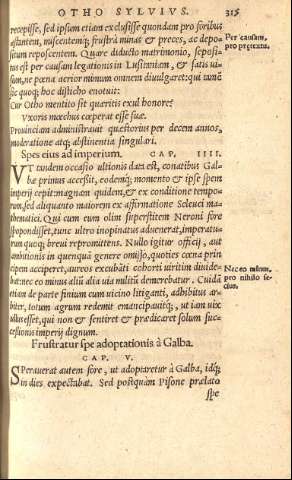 OTHO SYLVIUS. 315
recepisse, sed ipsum etiam exclusisse quondam pro foribus
astantem, miscentemq; frustrà minas & preces, ac depo-
situm reposcentem. Quare diducto matrimonio, seposi-
tus est per causam legationis in Lusitaniam, & satis ui-
sum, ne pœna acrior mimum omnem diuulgaret: qui tamē
sic quoq; hoc disticho enotuit:
Cur Otho mentito sit quæritis exul honore?
Vxoris mœchus cœperat esse suæ.
Prouinciam administrauit quæstorius per decem annos,
moderatione atq; abstinentia singulari.
Per causam,
pro prętextu.
Spes eius ad imperium. CAP. IIII.
VT tandem occasio ultionis data est, conatibus Gal-
bæ primus accessit, eodemq; momento & ipse spem
imperij cepit: magnam quidem, & ex conditione tempo-
rum, sed aliquanto maiorem ex affirmatione Seleuci ma-
thematici. Qui cum eum olim superstitem Neroni fore
spopondisset, tunc ultro inopinatus aduenerat, imperatu-
rum quoq; breui repromittens. Nullo igitur officij, aut
ambitionis in quenquā genere omisso, quoties cœna prin
cipem acciperet, aureos excubāti cohorti uiritim diuide-
bat: nec eo minus aliū alia uia militū demerebatur. Cuidā
etiam de parte finium cum uicino litiganti, adhibitus ar-
biter, totum agrum redemit emancipauitq;, ut iam uix
ullus esset, qui non & sentiret & prædicaret solum suc-
cessionis imperij dignum.
Nec eo minus,
pro nihilo se-
cius.
Frustratur spe adoptationis à Galba.
CAP. V.
SPerauerat autem fore, ut adoptaretur à Galba, idq;
in dies expectabat. Sed postquàm Pisone prælato
spe